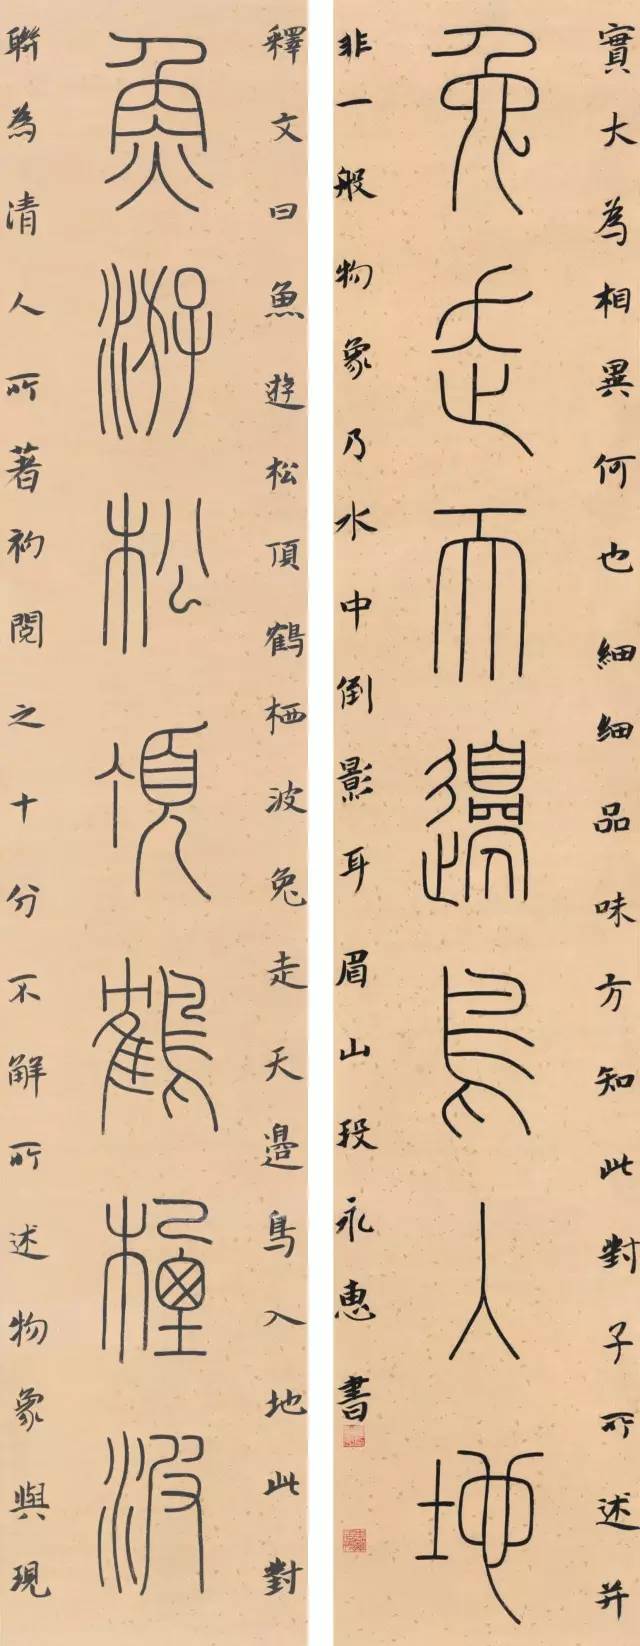 釋文曰魚遊松頂鶴栖波兔走天邊鳥入地此對
魚游松頂鶴棲波
聯為清人所著初閱之十分不解所述物象與現
實大為相異何也細細品味方知此對子所述并
兔走天邊鳥入地
非一般物象乃水中倒影耳眉山段永惠書